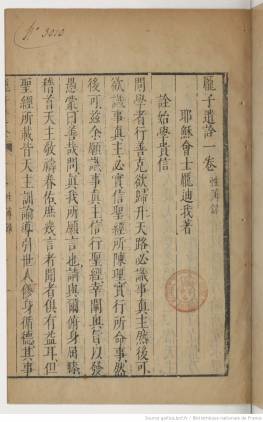 N° 3010
龐子遺詮一卷
耶穌會士龐迪我著
詮始學貴信
問學者行善克欲歸升天路必識事真主然後可
欲識事真主必實信聖經所陳理實行所命事然
後可茲余願識事真主信行聖經幸闡奥旨以發
愚蒙曰善哉問真我所願言也請與爾俯身屈膝
稽首天主敬禱眷佑庶幾言者聞者俱有益耳但
聖經所載皆天主訓諭導引世人修身循德其事
Source gallica.bnf.fr / Bibliothèque nationale de France